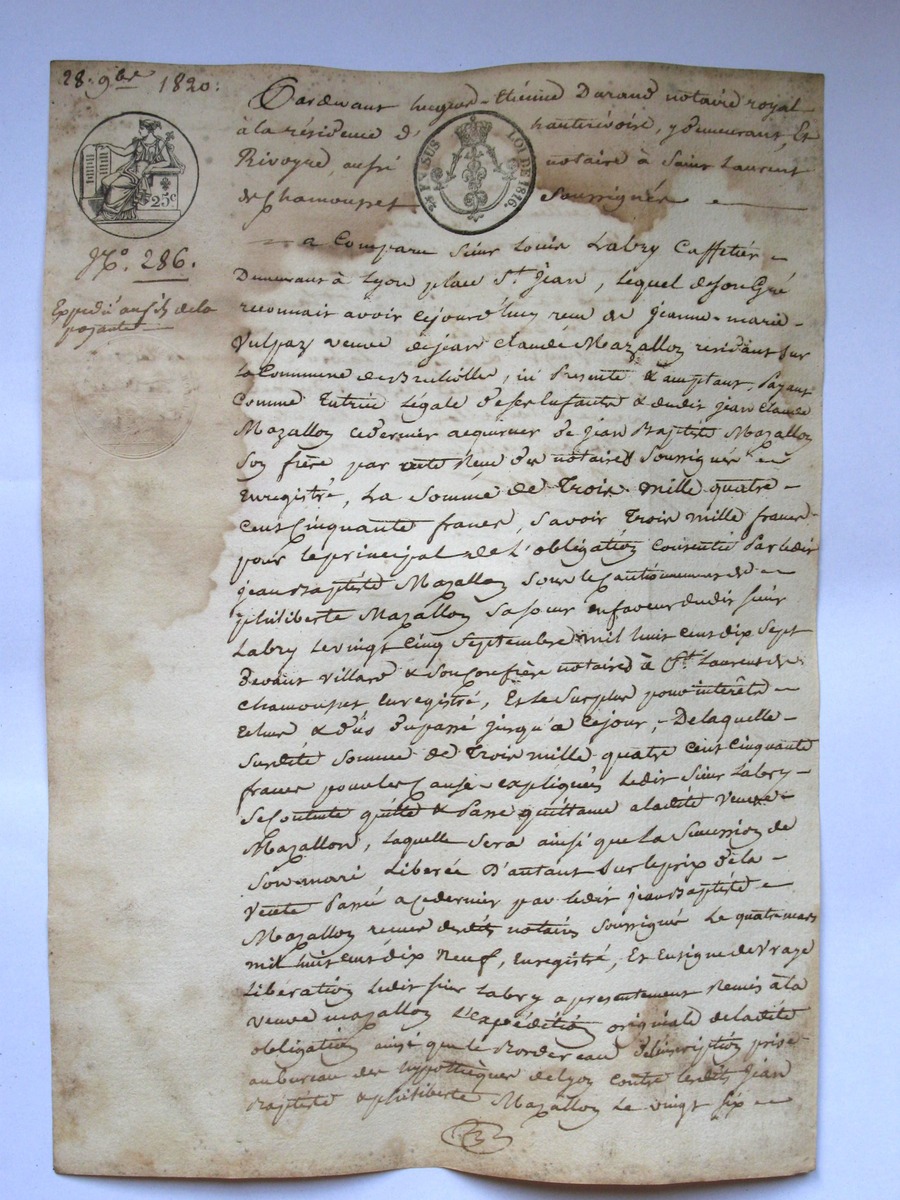 28. 9bre 1820.
25c
No. 286.
Expédié aux fs de la
payante
TIMBRE LOI DE 1816.
Pardevant hugues-Etienne Durand notaire royal
à la résidence d' hauterivoire, y demeurant, Et
Rivoyre, aussi notaire à Saint Laurent
de Chamousset Soussignés
a Comparu Sieur Louis Labry Caffetier
Demeurant à Lyon place St. jean, lequel de son Gré
reconnait avoir cejourd'huy reçu de jeanne-marie
Vulpaz veuve de jean Claude Mazallon residant sur
la Commune de Brullolle, ici Présente & acceptant, Payant
Comme Tutrice légale de ses Enfants & dudit jean Claude
Mazallon ce dernier acquereur de jean Baptiste Mazallon
Son frère par vente Reçue des notaires Soussignés
Enregistré, La Somme de Trois mille quatre
cent Cinquante francs, Savoir Trois mille francs
pour le principal de L'obligation Consentie Par ledit
jean Baptiste Mazallon Sous le Cautionnement de
philiberte Mazallon Sa Sœur en faveur dudit Sieur
Labry Le vingt Cinq Septembre mil huit cent dix Sept
Devant Villard & Son Confrère notaires à St. Laurent de
Chamousset Enregistré, Et le Surplus pour intérêts
Echus & dûs du passé jusqu'à Ce jour, De laquelle
Susdite Somme de Trois mille quatre Cent Cinquante
francs pour les Causes expliquées ledit Sieur Labry
Se Contente quitte & Passe quittance à ladite Veuve
Mazallon, laquelle Sera ainsi que la Succession de
Son mari Libérée D'autant Sur le prix de la
Vente Passée a ce dernier par ledit jean Baptiste
Mazallon reçue desdits notaires Soussignés Le quatre mars
mil huit cent dix Neuf, Enregistré, Et En Signe de Vraye
Libération ledit Sieur Labry a presentement Remis à la
Veuve mazallon L'Expédition originale de ladite
obligation ainsi que le Bordereau d'inscription prise
au bureau des hypothèques de Lyon Contre lesdits Jean
Baptiste & philiberte Mazallon Le vingt Six